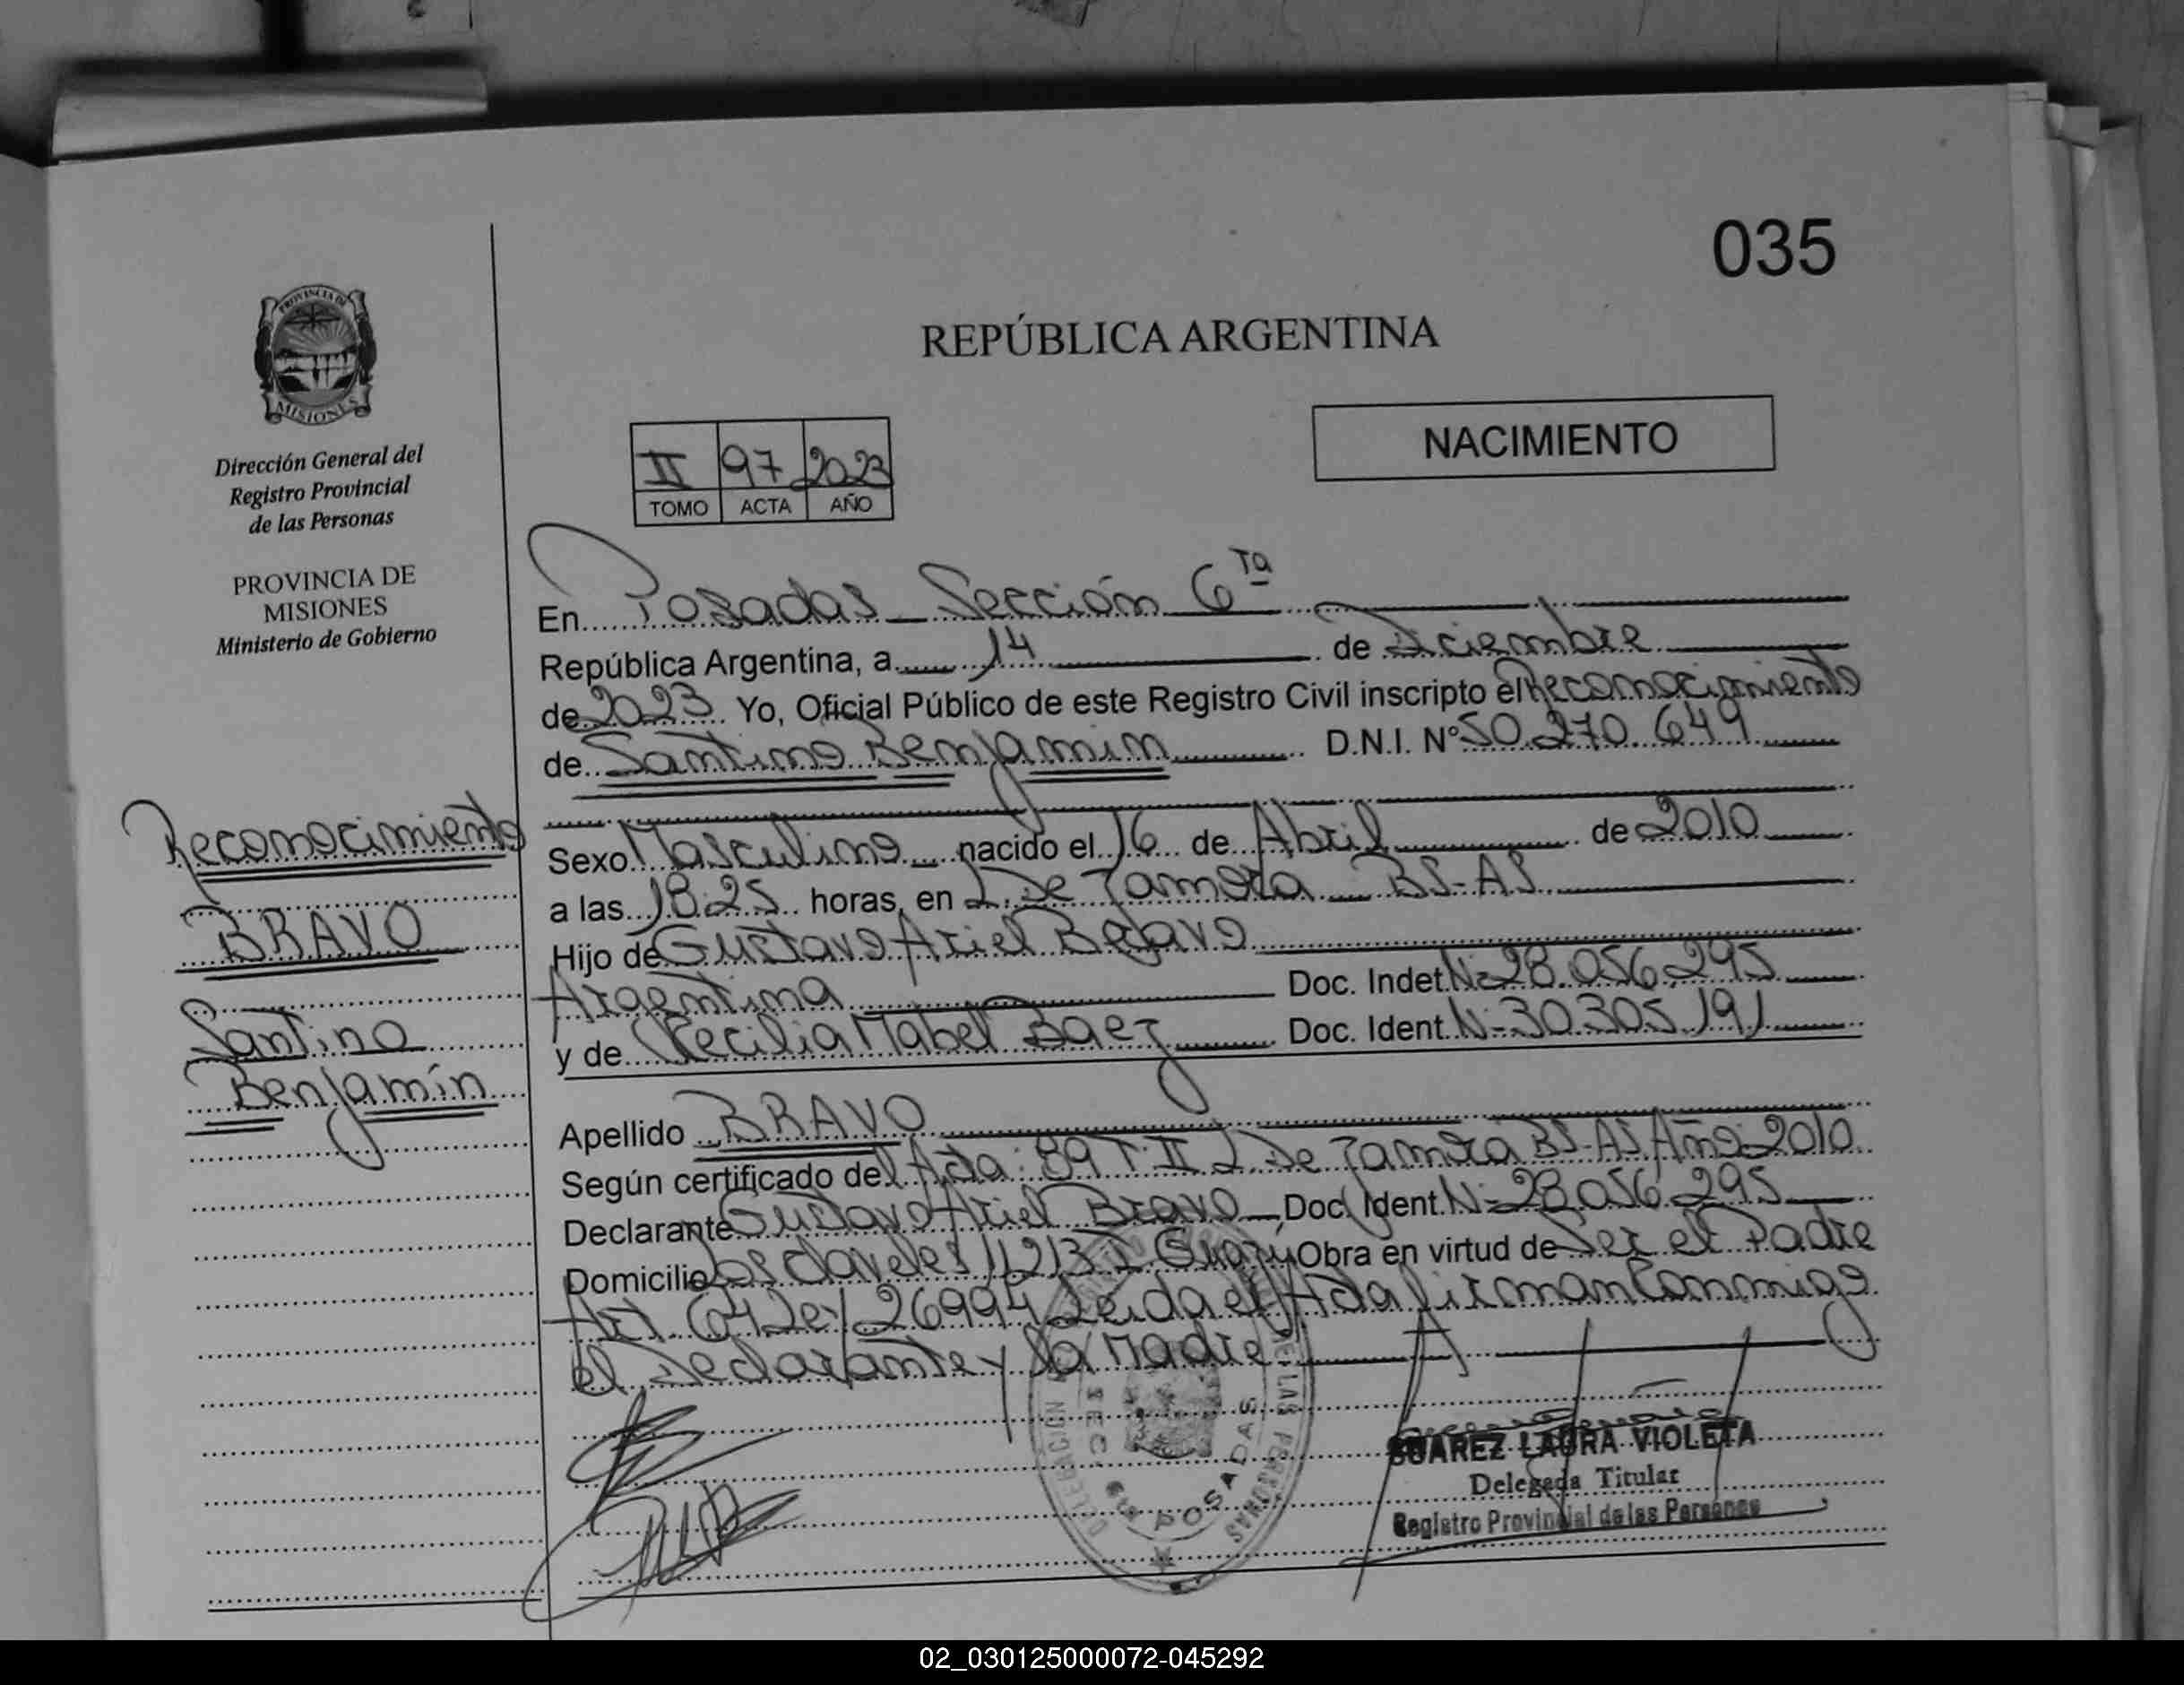 035
REPÚBLICA ARGENTINA
NACIMIENTO
PROVINCIA DE
MISIONES
Dirección General del
Registro Provincial
de las Personas
PROVINCIA DE
MISIONES
Ministerio de Gobierno
II 97 2023
TOMO ACTA AÑO
En Posadas Sección 6ta
República Argentina, a 14 de Diciembre
de 2023 Yo, Oficial Público de este Registro Civil inscripto el Reconocimiento
de Santino Benjamin D.N.I. N° 50.270.649
Sexo Masculino nacido el 16 de Abril de 2010
a las 18:25 horas, en L. De Zamora BS-AS
Hijo de Gustavo Ariel Bravo
Argentina Doc. Indet. N- 28.056.295
y de Cecilia Mabel Baez Doc. Ident. N- 30.305.191
Apellido BRAVO
Según certificado del Acta: 89 T II L De Zamora BS-AS Año 2010
Declarante Gustavo Ariel Bravo Doc. Ident. N- 28.056.295
Domicilio Los claveles Obra en virtud de Ser el Padre
Art. 64 Ley 26994 Leida el Acta firman Conmigo
el Declarante y la Madre
Reconocimiento
BRAVO
Santino
Benjamín
DELEGACIÓN DE LAS PERSONAS
SEC 6ta POSADAS
SUAREZ LAURA VIOLETA
Delegada Titular
Registro Provincial de las Personas
02_030125000072-045292